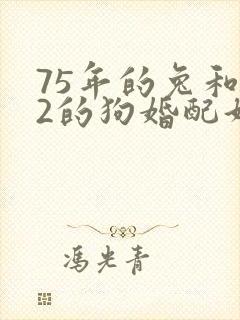 75年的兔和
2的狗婚配
冯光青